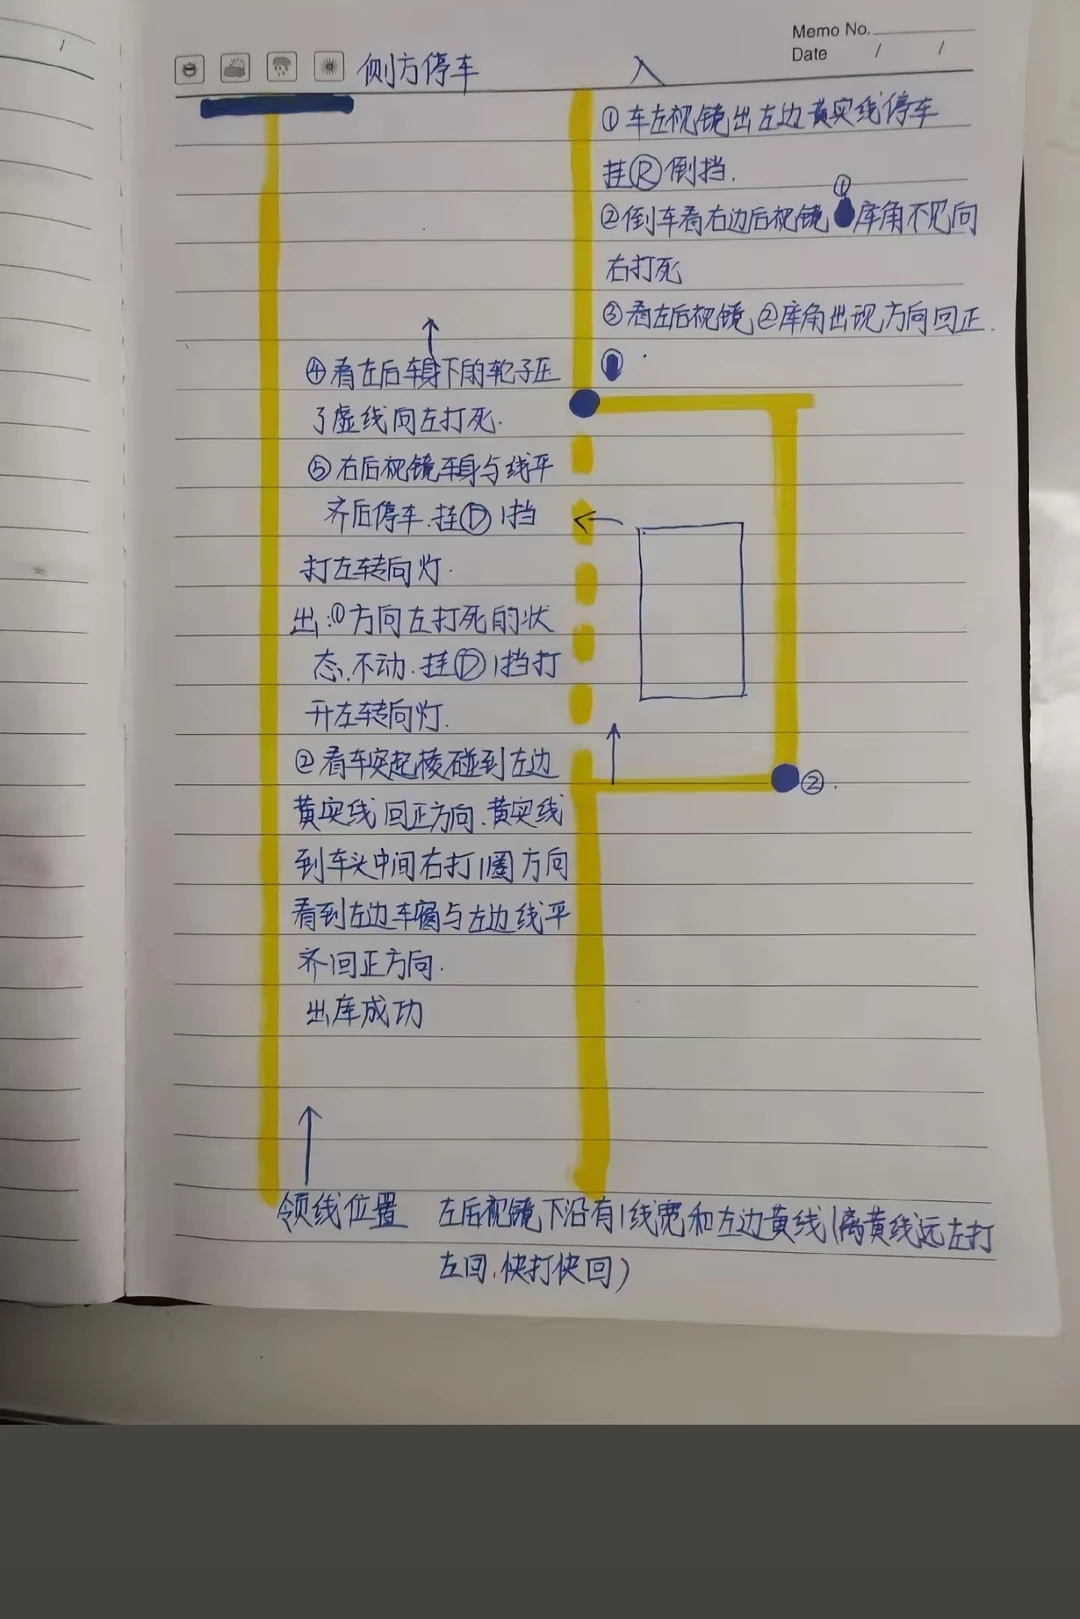 Memo No.
Date / /
侧方停车
入
①车左视镜出左边黄实线停车
挂Ⓡ倒挡.
②倒车看右边后视镜①库角不见向
右打死
③看左后视镜,②库角出现方向回正.
①
④看左后车身下的轮子压
了虚线向左打死.
⑤右后视镜车身与线平
齐后停车.挂Ⓓ1挡
打左转向灯.
出:①方向左打死的状
态,不动.挂Ⓓ1挡打
开左转向灯.
②看车突起棱碰到左边
黄实线回正方向.黄实线
到车头中间右打1圈方向
看到左边车窗与左边线平
齐回正方向.
出库成功
②.
领线位置 左后视镜下沿有1线宽和左边黄线(离黄线远左打
左回,快打快回)